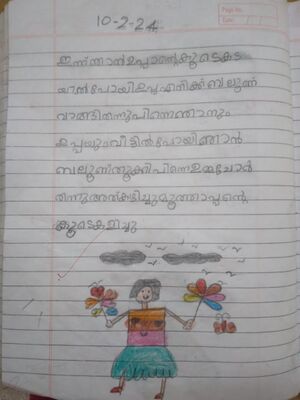 Page No.
Date
10-2-24
ഇന്ന് ഞാൻ ഉപ്പാന്റെ കൂടെ കട
യിൽ പോയി ഉപ്പ എനിക്ക് ബലൂൺ
വാങ്ങി തന്നു പിന്നെ ഞാനും
ഉപ്പയും വീട്ടിൽ പോയി ഞാൻ
ബലൂൺ തൂക്കി പിന്നെ ഉമ്മ ചോർ
തന്നു അത് കഴിച്ചു മൂത്താപ്പന്റെ
കൂടെ കളിച്ചു